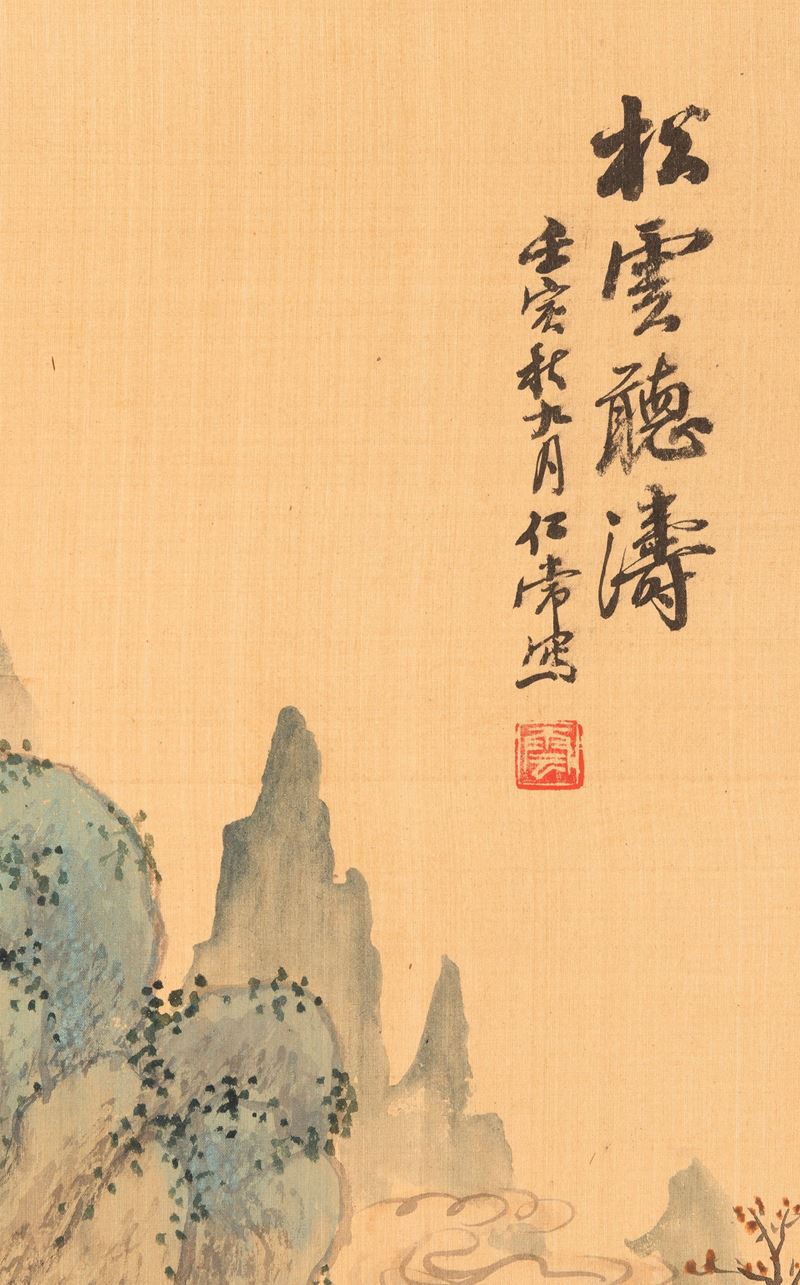 松雲聽濤
壬寅秋九月仁常寫
雲